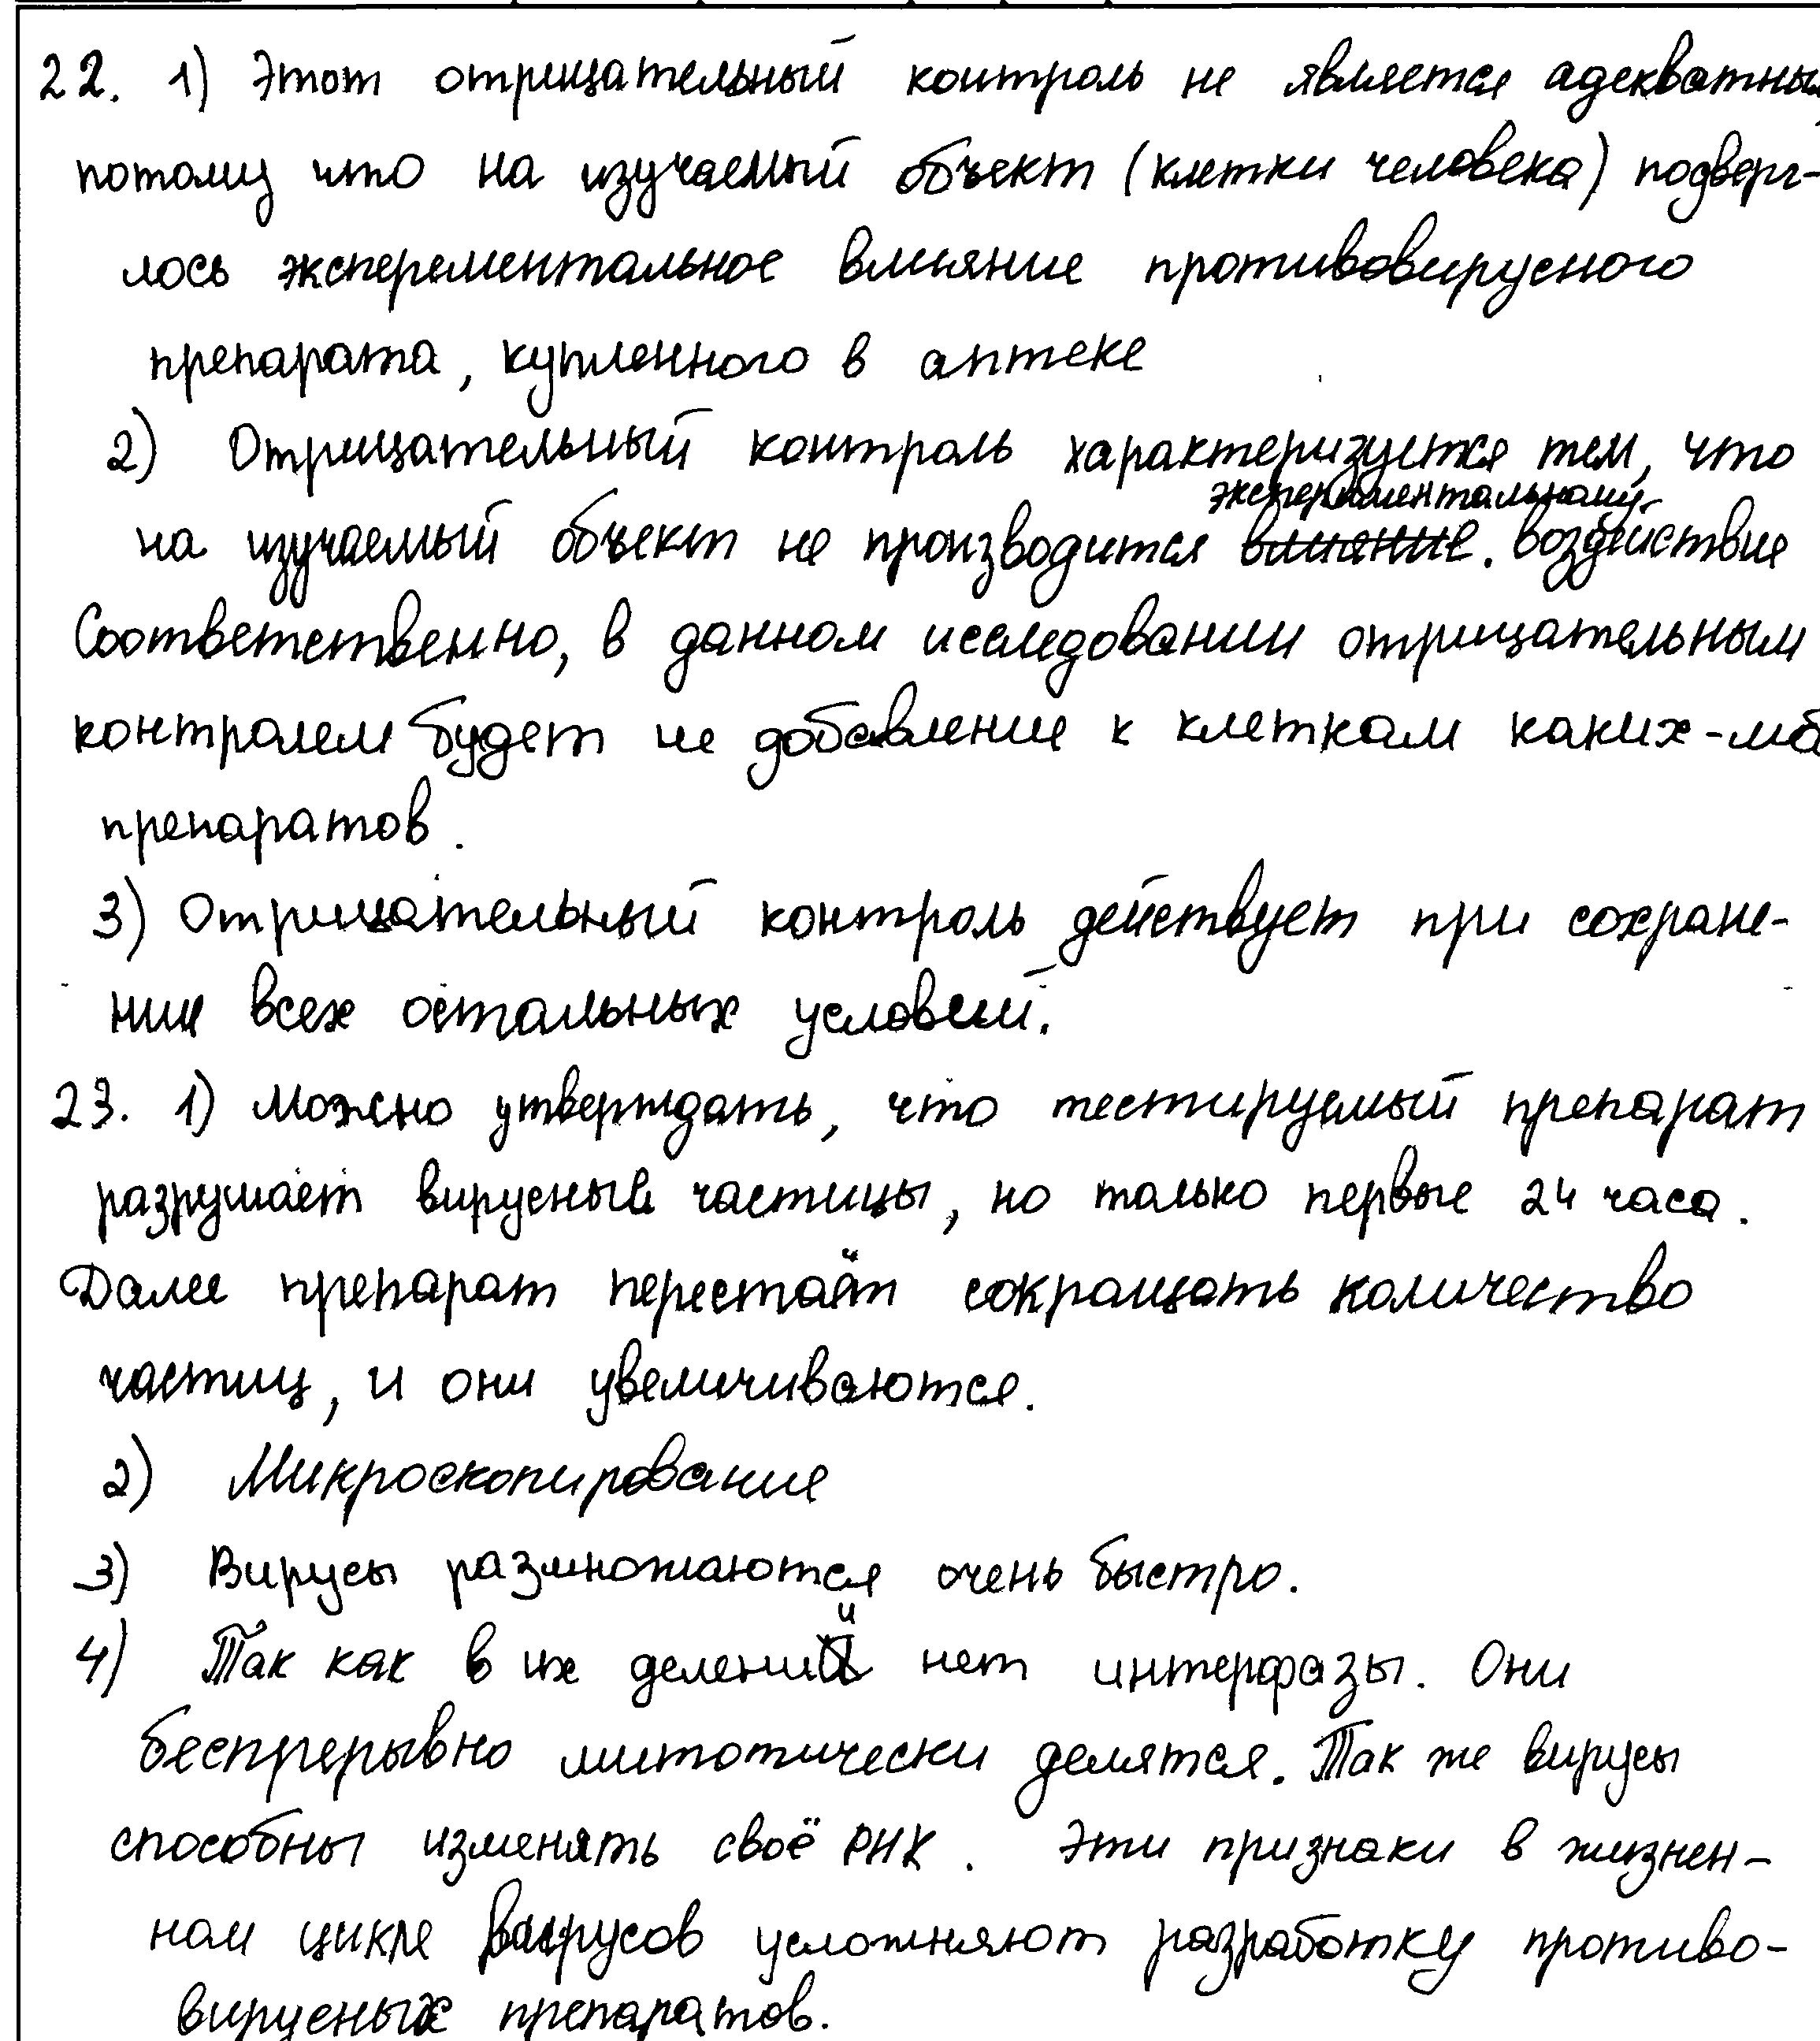 22. 1) Этот отрицательный контроль не является адекватны
потому что на изучаемый объект (клетки человека) подверг-
лось эксперементальное влияние противовирусного
препарата, купленного в аптеке
2) Отрицательный контроль характеризуется тем, что
экспериментальному
на изучаемый объект не производится влияние. воздействие
Соответственно, в данном исследовании отрицательным
контролем будет не добавление к клеткам каких-либ
препаратов.
3) Отрицательный контроль действует при сохране-
нии всех остальных условий.
23. 1) Можно утверждать, что тестируемый препарат
разрушает вирусные частицы, но только первые 24 часа.
Далее препарат перестаёт сокращать количество
частиц, и они увеличиваются.
2) Микроскопирование
3) Вирусы размножаются очень быстро.
4) Так как в их делении нет интерфазы. Они
беспрерывно митотически делятся. Так же вирусы
способны изменять своё РНК. Эти признаки в жизнен-
ном цикле вирусов усложняют разработку противо-
вирусных препаратов.